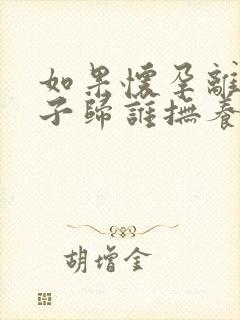 如果懷孕離
子歸誰撫養
胡增金